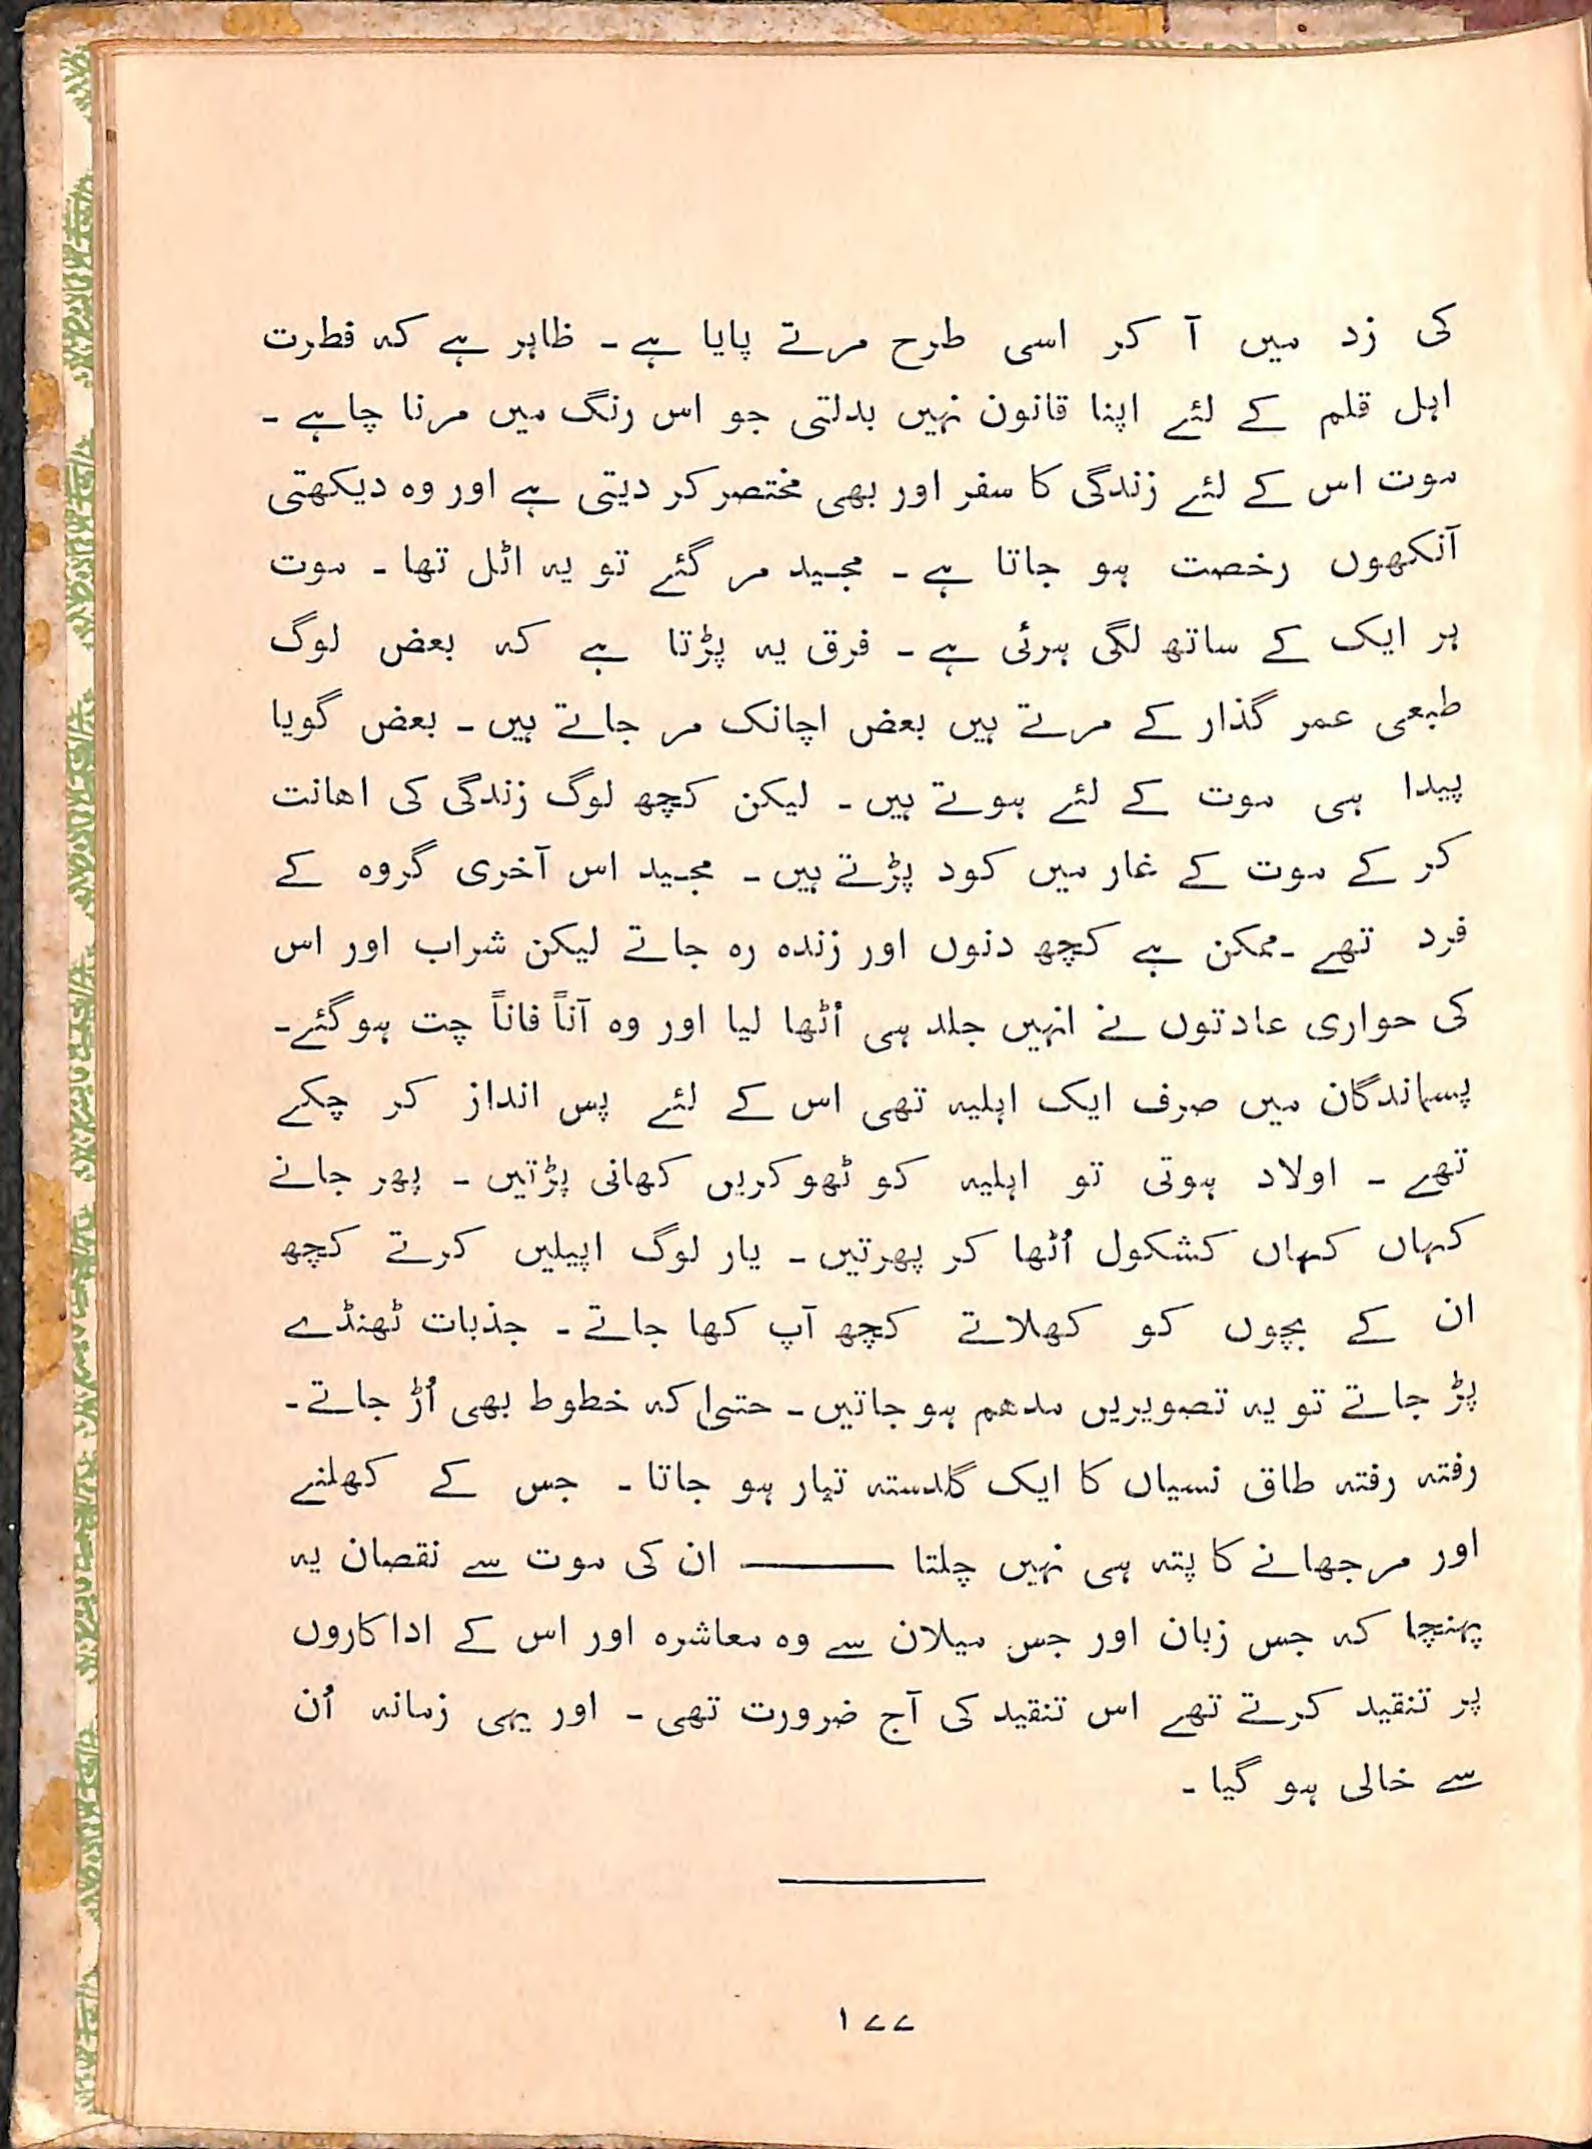 کی زد میں آ کر اسی طرح مرتے پایا ہے ۔ ظاہر ہے کہ فطرت
اہل قلم کے لئے اپنا قانون نہیں بدلتی جو اس رنگ میں مرنا چاہے ۔
موت اس کے لئے زندگی کا سفر اور بھی مختصر کر دیتی ہے اور وہ دیکھتی
آنکھوں رخصت ہو جاتا ہے ۔ مجید مر گئے تو یہ اٹل تھا ۔ موت
ہر ایک کے ساتھ لگی ہوئی ہے ۔ فرق یہ پڑتا ہے کہ بعض لوگ
طبعی عمر گذار کے مرتے ہیں بعض اچانک مر جاتے ہیں ۔ بعض گویا
پیدا ہی موت کے لئے ہوتے ہیں ۔ لیکن کچھ لوگ زندگی کی اھانت
کر کے موت کے غار میں کود پڑتے ہیں ۔ مجید اس آخری گروہ کے
فرد تھے ۔ ممکن ہے کچھ دنوں اور زندہ رہ جاتے لیکن شراب اور اس
کی حواری عادتوں نے انہیں جلد ہی اُٹھا لیا اور وہ آناً فاناً چت ہو گئے ۔
پسماندگان میں صرف ایک اہلیہ تھی اس کے لئے پس انداز کر چکے
تھے ۔ اولاد ہوتی تو اہلیہ کو ٹھوکریں کھانی پڑتیں ۔ پھر جانے
کہاں کہاں کشکول اُٹھا کر پھرتیں ۔ یار لوگ اپیلیں کرتے کچھ
ان کے بچوں کو کھلاتے کچھ آپ کھا جاتے ۔ جذبات ٹھنڈے
پڑ جاتے تو یہ تصویریں مدھم ہو جاتیں ۔ حتیٰ کہ خطوط بھی اُڑ جاتے ۔
رفتہ رفتہ طاق نسیاں کا ایک گلدستہ تیار ہو جاتا ۔ جس کے کھلنے
اور مرجھانے کا پتہ ہی نہیں چلتا ——— ان کی موت سے نقصان یہ
پہنچا کہ جس زبان اور جس میلان سے وہ معاشرہ اور اس کے اداکاروں
پر تنقید کرتے تھے اس تنقید کی آج ضرورت تھی ۔ اور یہی زمانہ اُن
سے خالی ہو گیا ۔
۱۷۷